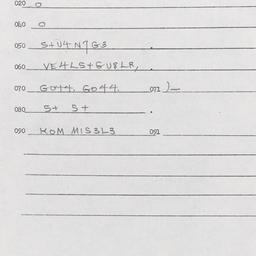 020 O
040 O
050 S+U4N7G3 .
060 VE4LS+GU8LR, .
070 G0++4, G044. 072 )—
080 S+ S+ .
090 KOM MIS3L3 092